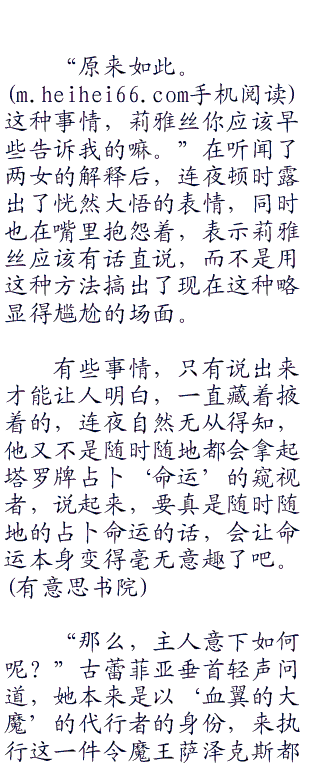 “原来如此。
(m.heihei66.com手机阅读)
这种事情，莉雅丝你应该早
些告诉我的嘛。”在听闻了
两女的解释后，连夜顿时露
出了恍然大悟的表情，同时
也在嘴里抱怨着，表示莉雅
丝应该有话直说，而不是用
这种方法搞出了现在这种略
显得尴尬的场面。
有些事情，只有说出来
才能让人明白，一直藏着掖
着的，连夜自然无从得知，
他又不是随时随地都会拿起
塔罗牌占卜‘命运’的窥视
者，说起来，要真是随时随
地的占卜命运的话，会让命
运本身变得毫无意趣了吧。
(有意思书院)
“那么，主人意下如何
呢？”古蕾菲亚垂首轻声问
道，她本来是以‘血翼的大
魔’的代行者的身份，来执
行这一件令魔王萨泽克斯都